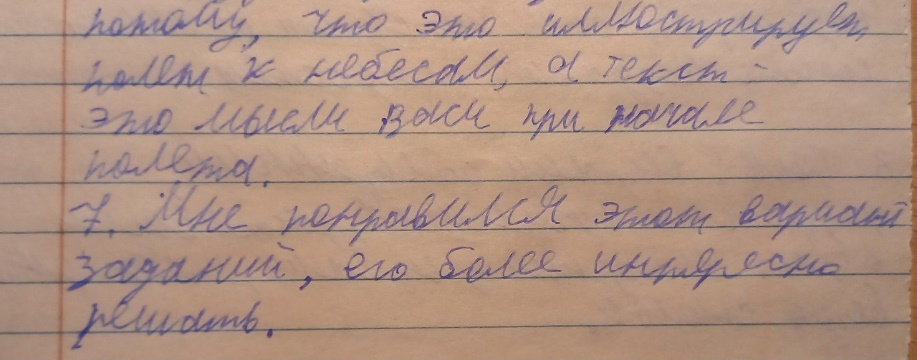 потому, что это иллюстрирует
полет к небесам, а текст -
это мысли Васи при начале
полета.
7. Мне понравился этот вариант
заданий, его более интересно
решать.